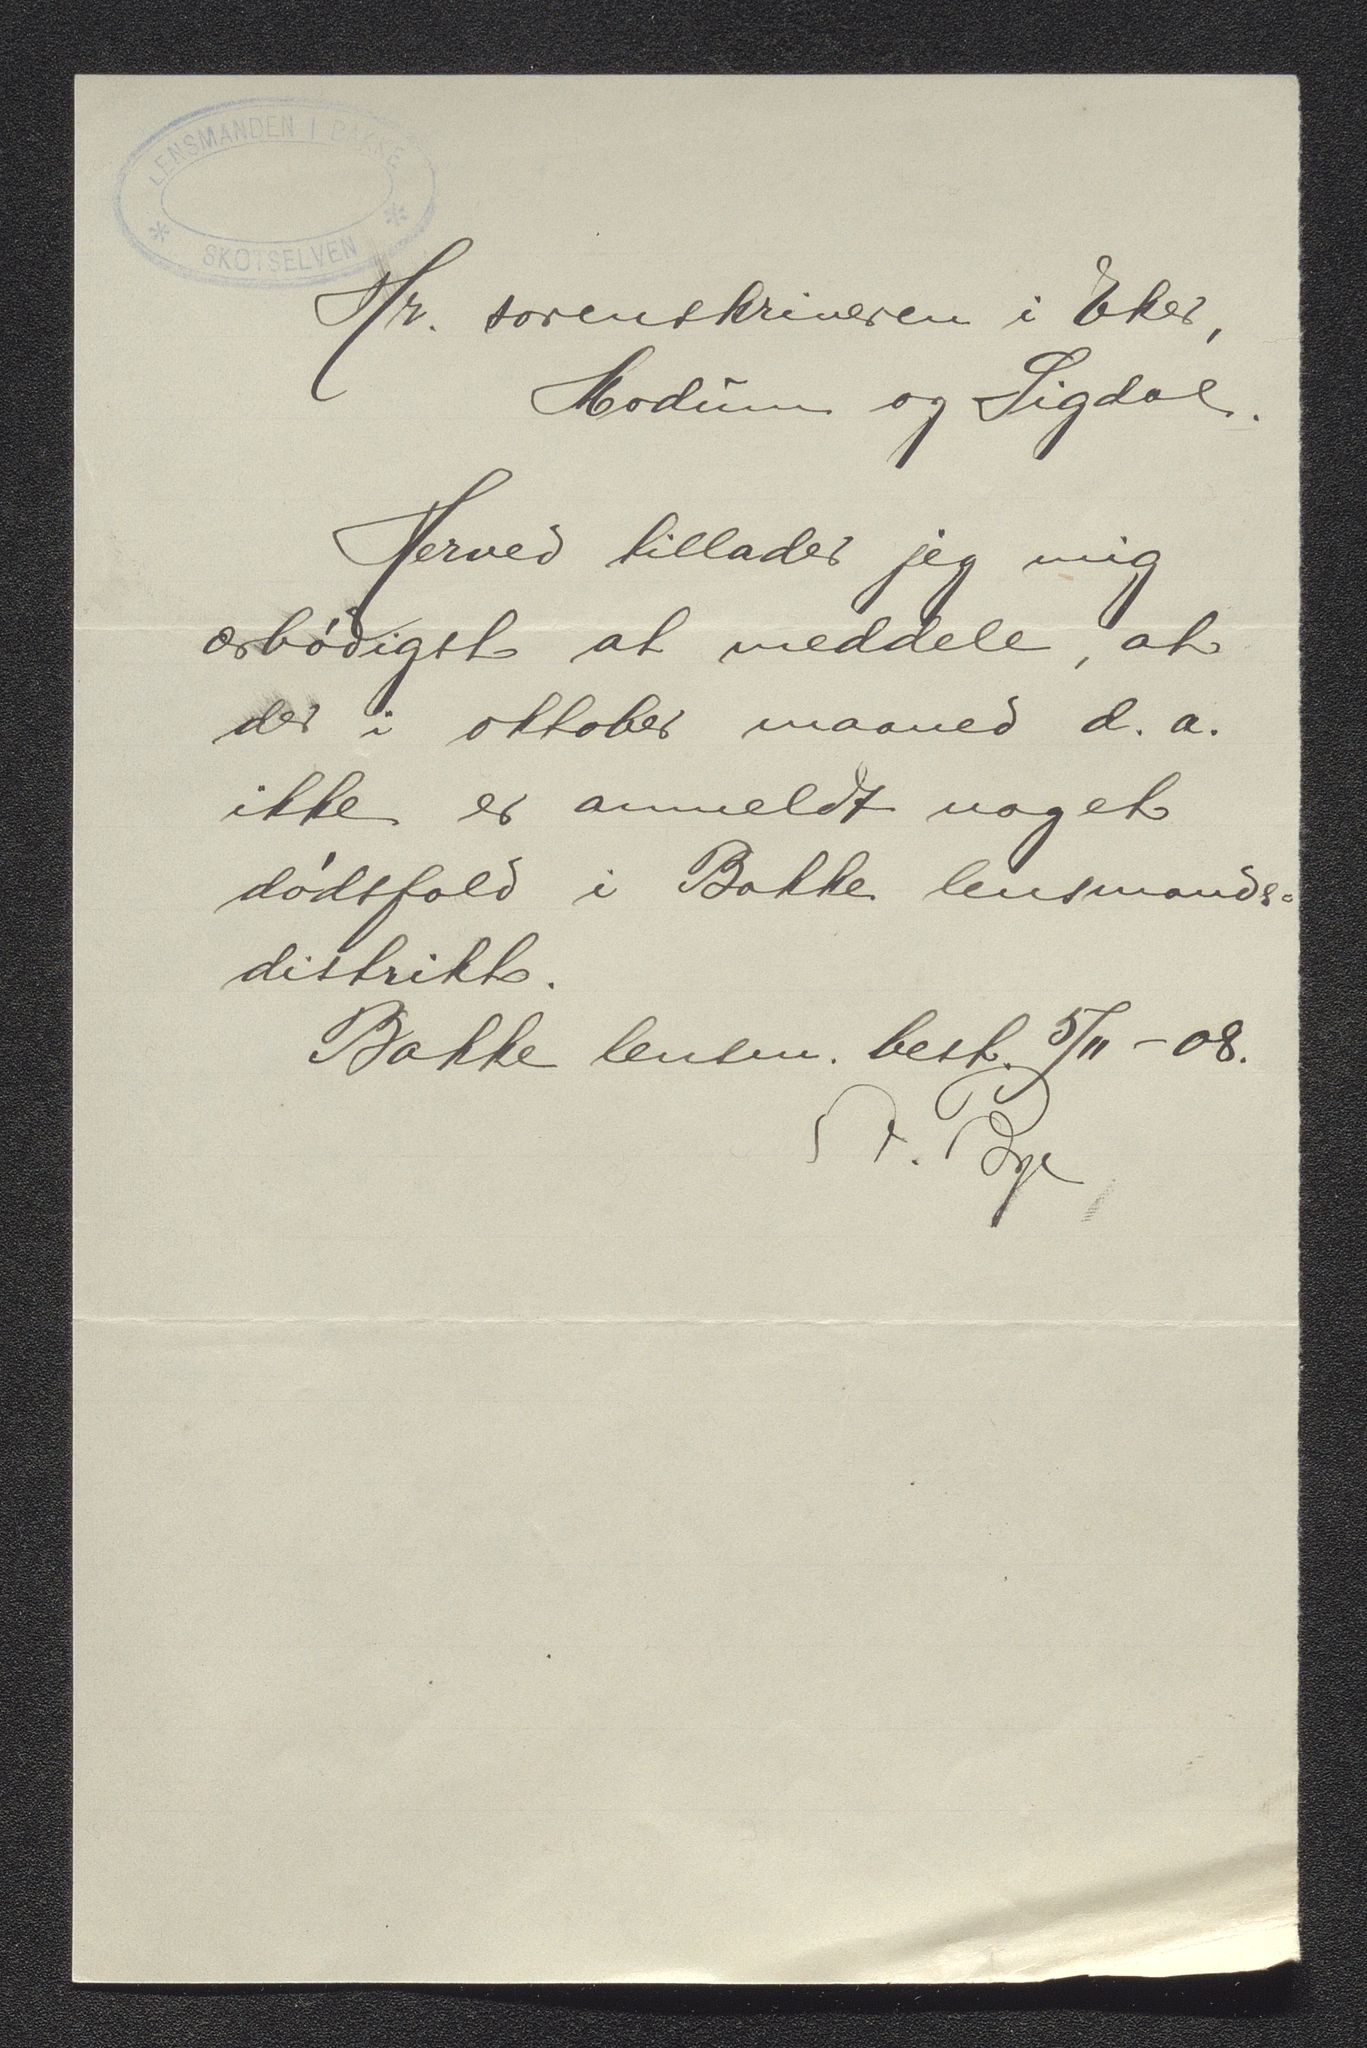 LENSMANDEN I BAKKE
* SKOTSELVEN *
Hr. sorenskriveren i Eker,
Modum og Sigdal.
Herved tillader jeg mig
ærbødigst at meddele, at
der i oktober maaned d. a.
ikke er anmeldt noget
dødsfald i Bakke lensmands-
distrikt.
Bakke lensm. best. 5/11 - 08.
Bye